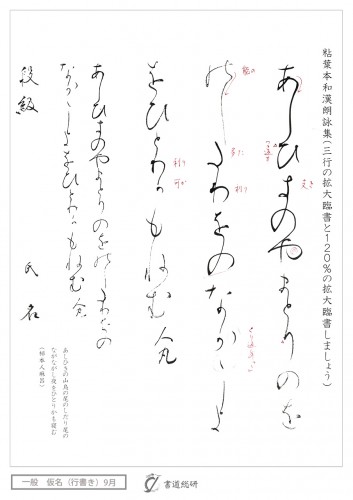 粘葉本和漢朗詠集(三行の拡大臨書と120%の拡大臨書しましょう)
あしひきのやまとりのを
支き
のしたりをのなかゝしよ
能の
多た
利り
をひとりかもねむ 人丸
利り
可か
あしひきのやまとりのをのしたりをの
なかゝしよをひとりかもねむ 人丸
あしひきの山鳥の尾のしだり尾の
ながながし夜をひとりかも寝む
(柿本人麻呂)
段級 氏名
一般 仮名(行書き)9月
書道総研